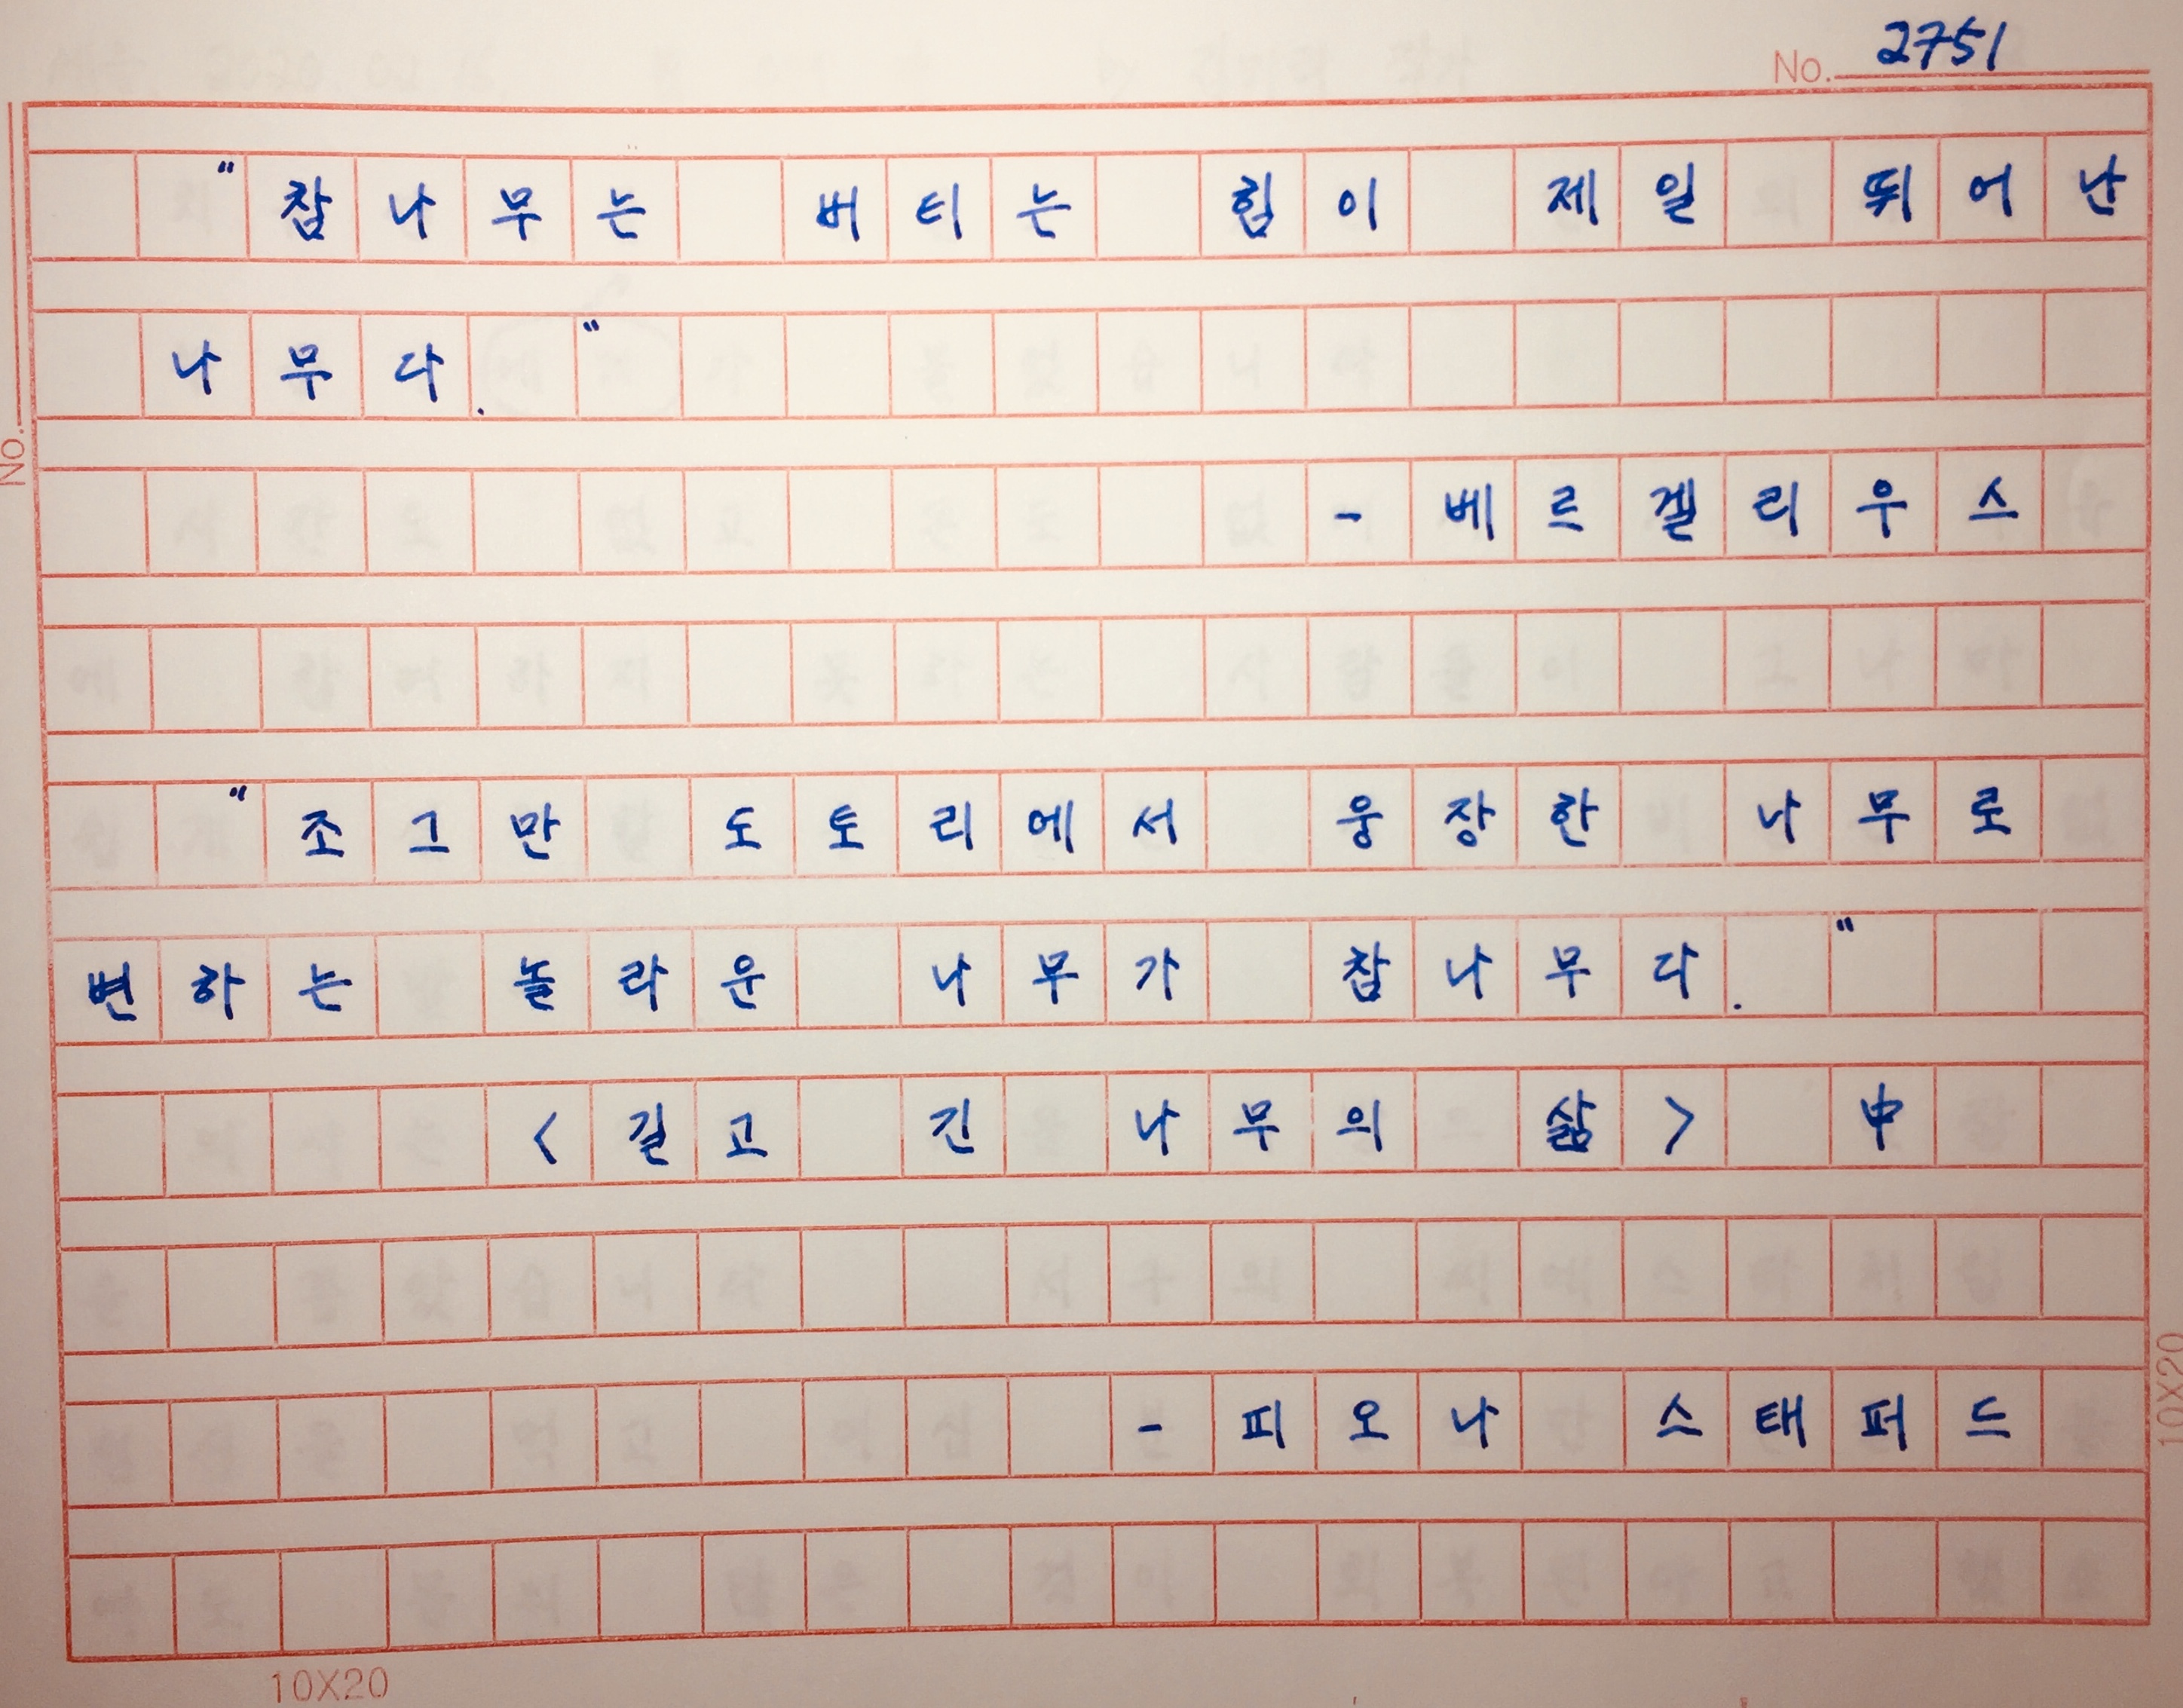 No. 2751
"참나무는 버티는 힘이 제일 뛰어난
나무다."
No.
- 베르겔리우스
"조그만 도토리에서 웅장한 나무로
변하는 놀라운 나무가 참나무다."
<길고 긴 나무의 삶> 中
- 피오나 스태퍼드
10X20
10X20